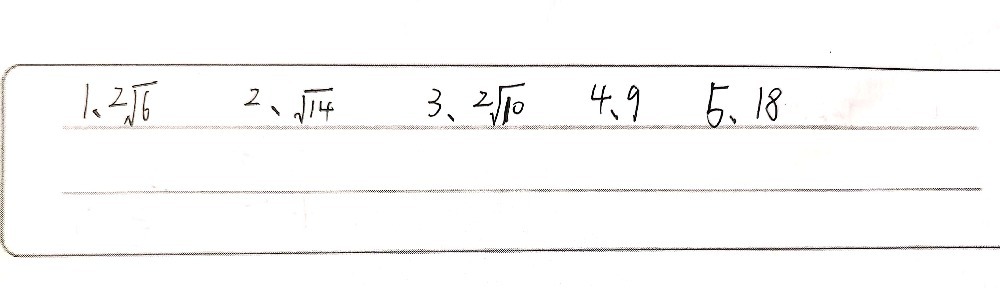 1、2√6 2、√14 3、2√10 4、9 5、18